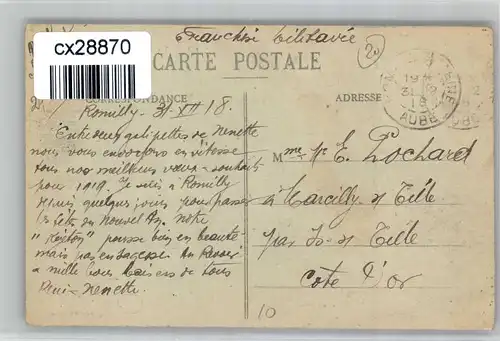 cx28870
Franchise Militaire
20
CARTE POSTALE
CORRESPONDANCE
ADRESSE
19
31
AUBE
Romilly - 31-XII 18.
Entre deux galipettes de Nenette
nous vous envoyons en vitesse
tous nos meilleurs vœux - souhaits
pour 1919. Je suis à Romilly
depuis quelques jours pour passer
les fêtes du Nouvel An. Notre
" " pousse bien en beauté
mais pas en sagesse. Au Revoir
& mille bons baisers de tous
Nenette.
Mme Mr E. Pochard
à Marcilly s/ Tille
par Is-s/ Tille
Cote D'or
10